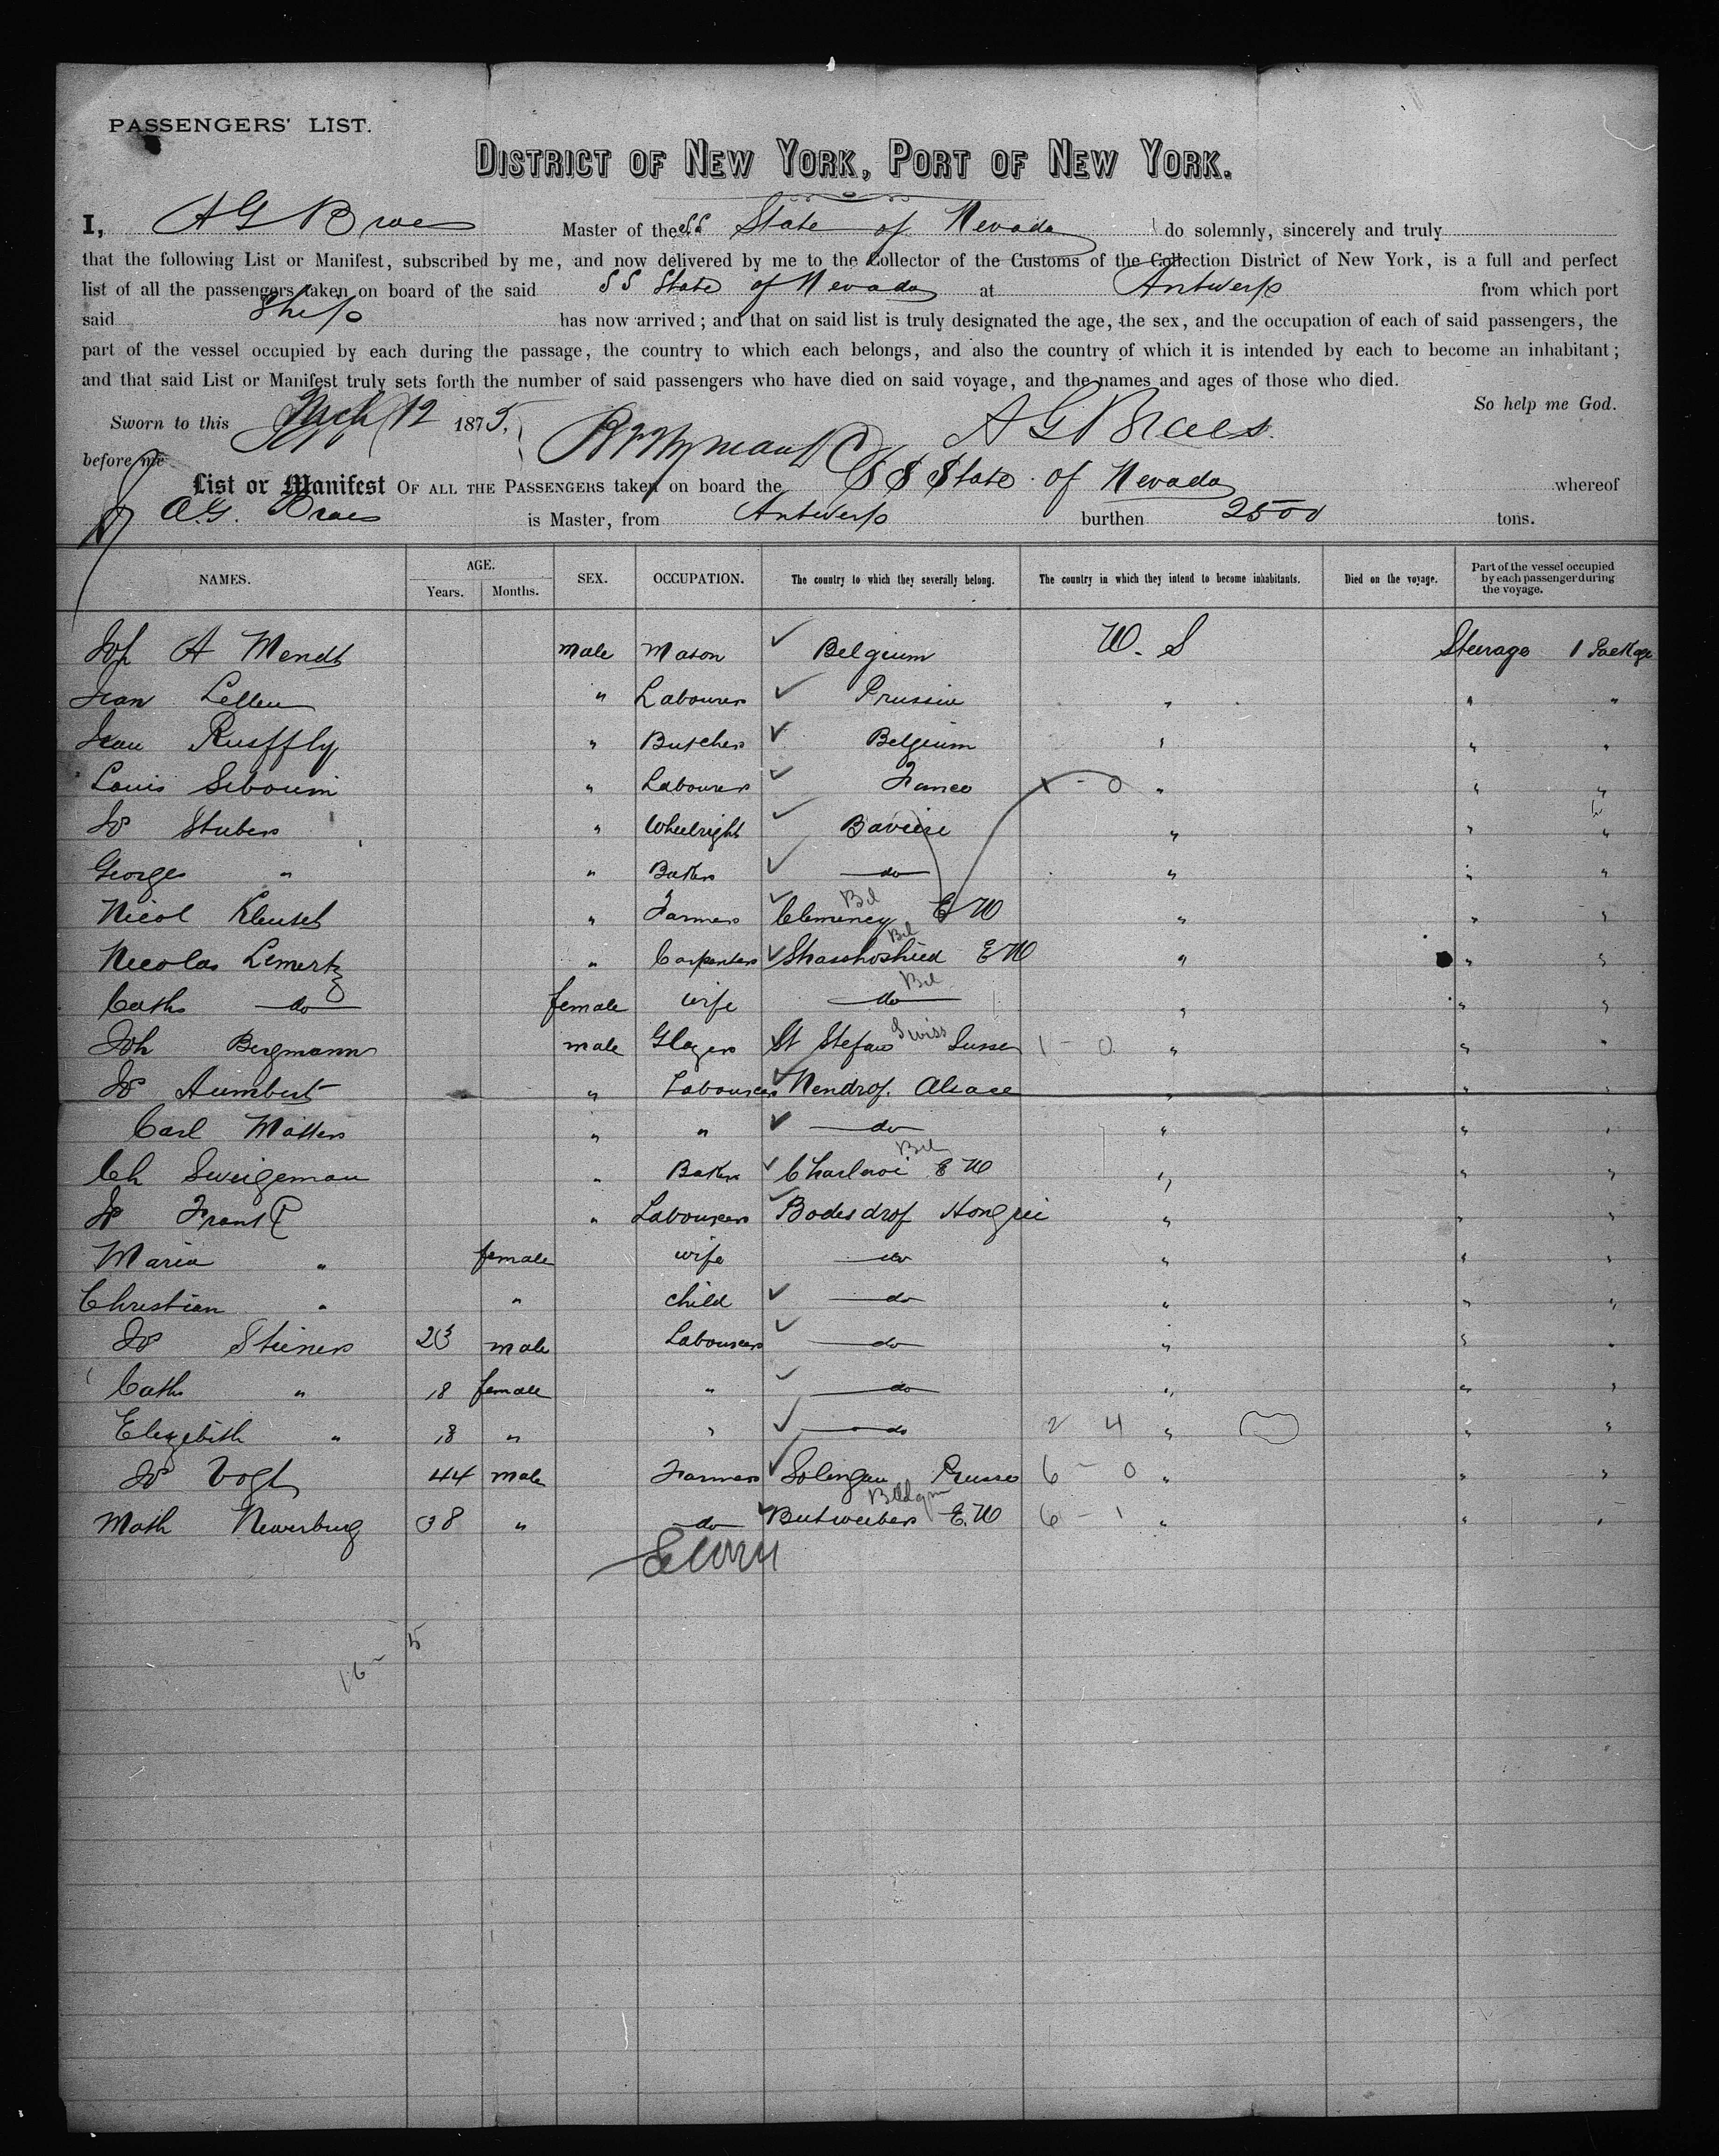 PASSENGERS' LIST.
DISTRICT OF NEW YORK, PORT OF NEW YORK.
I, A G Braes Master of the SS State of Nevada do solemnly, sincerely and truly
that the following List or Manifest, subscribed by me, and now delivered by me to the Collector of the Customs of the Collection District of New York, is a full and perfect
list of all the passengers taken on board of the said SS State of Nevada at Antwerp from which port
said Ship has now arrived; and that on said list is truly designated the age, the sex, and the occupation of each of said passengers, the
part of the vessel occupied by each during the passage, the country to which each belongs, and also the country of which it is intended by each to become an inhabitant;
and that said List or Manifest truly sets forth the number of said passengers who have died on said voyage, and the names and ages of those who died.
So help me God.
Sworn to this Mch 12 1875, A G Braes.
before me
List or Manifest OF ALL THE PASSENGERS taken on board the SS State of Nevada whereof
A.G. Braes is Master, from Antwerp burthen 2500 tons.
NAMES. AGE. Years. Months. SEX. OCCUPATION. The country to which they severally belong. The country in which they intend to become inhabitants. Died on the voyage. Part of the vessel occupied by each passenger during the voyage.
A Wendt male Mason Belgium U. S Steerage 1 Package
Jean Lellen " Labourer Prussia " " "
Jean Rusffly " Butcher Belgium " " "
Louis Seboum " Labourer France x - 0 " " "
Jos Stuber " Wheelright Baviere " " "
George " " Baker do " " "
Nicol Kleusch " Farmer Clemency Bel E W " " "
Nicolas Lemertz " Carpenter Bel E W " " "
Cath do female wife do Bel " " "
Joh Bergmann male Glazer St Stefan Swiss Susse 1 - 0 " " "
Jos Humbert " Labourer Nendrof. Alsace " " "
Carl Matter " " do " " "
Ch Sweigeman " Baker Charleroi Bel E W " " "
Jos Frank " Labourer Bodesdrof Hongrie " " "
Maria " female wife do " " "
Christian " " child do " " "
Jos Steiner 23 male Labourer do " " "
Cath " 18 female " do " " "
Elezebith " 18 " " do 2 4 " " "
Jos Vogt 44 male Farmer Solingen Prusse 6 - 0 " " "
Math Neuerburg 38 " do Butweiber E.W 6 - 1 " " "
16 - 5